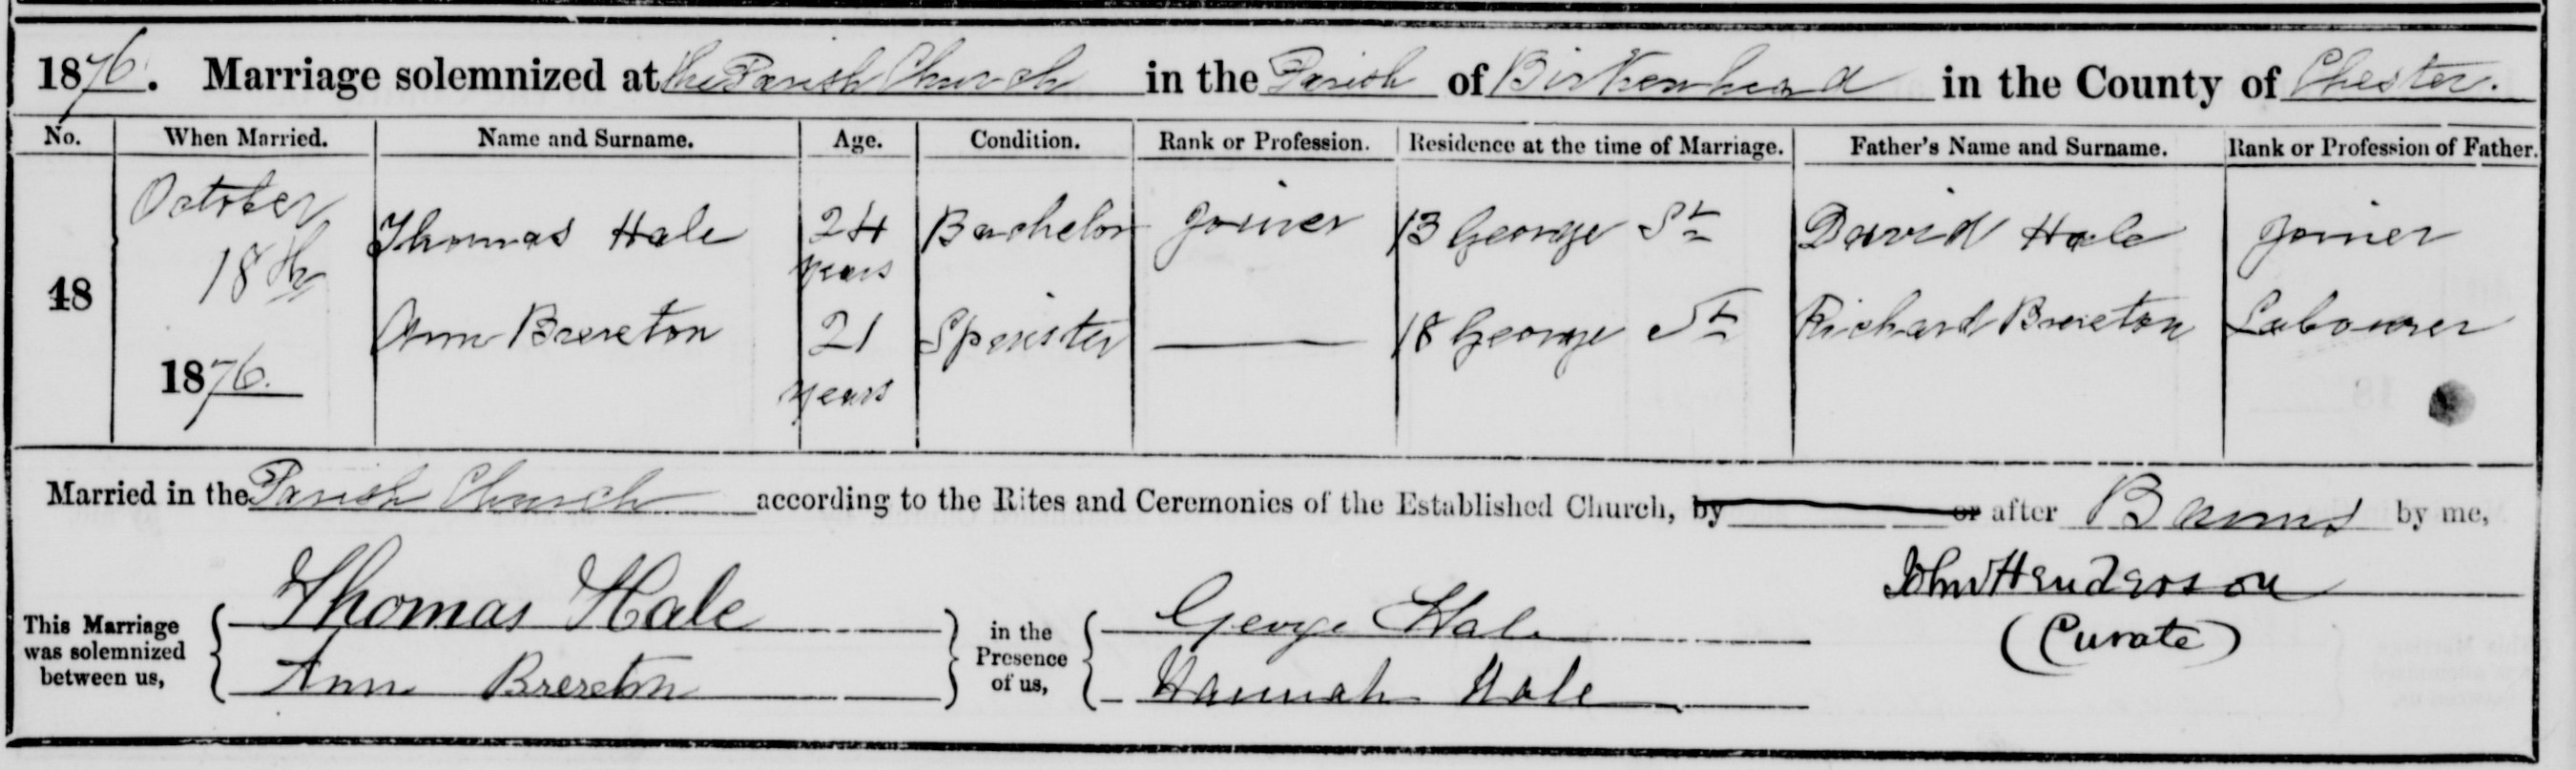 1876. Marriage solemnized at the Parish Church in the Parish of Birkenhead in the County of Chester.
No. When Married. Name and Surname. Age. Condition. Rank or Profession. Residence at the time of Marriage. Father's Name and Surname. Rank or Profession of Father.
48 October 18th 1876. Thomas Hale 24 years Bachelor Joiner 13 George St David Hale Joiner
Ann Brereton 21 years Spinster 18 George St Richard Brereton Labourer
Married in the Parish Church according to the Rites and Ceremonies of the Established Church, by or after Banns by me,
John Henderson
(Curate)
This Marriage was solemnized between us, Thomas Hale Ann Brereton
in the Presence of us, George Hale Hannah Hale